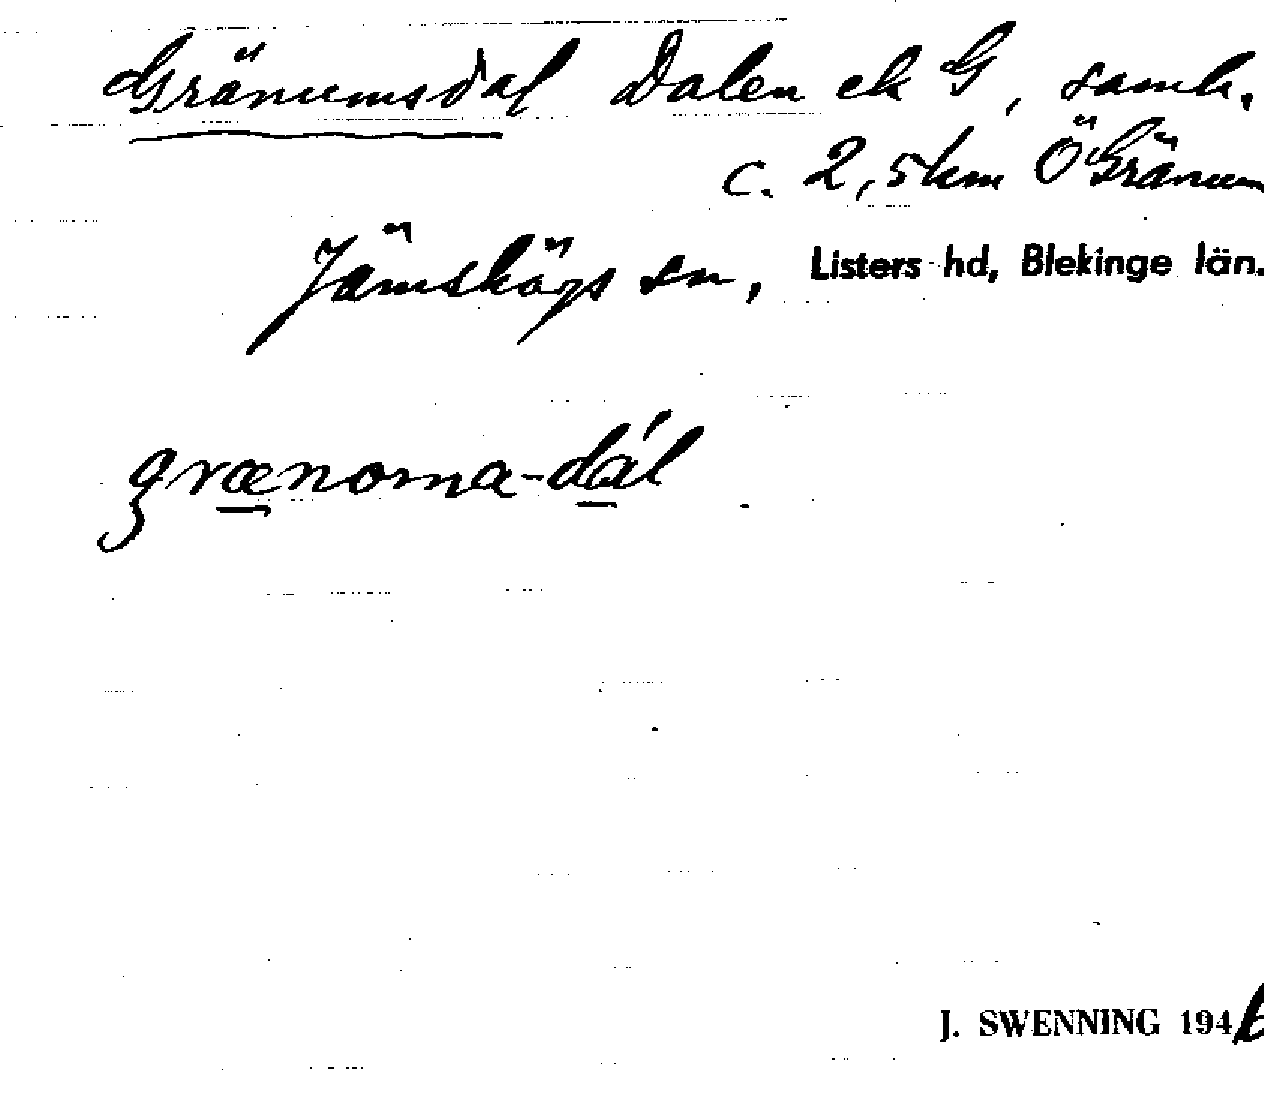 Gränumsdal Dalen ek G, saml.
c. 2,5 km Ö Gränum
Jämshögs sn, Listers hd, Blekinge län.
grænoma-dál
J. SWENNING 1946